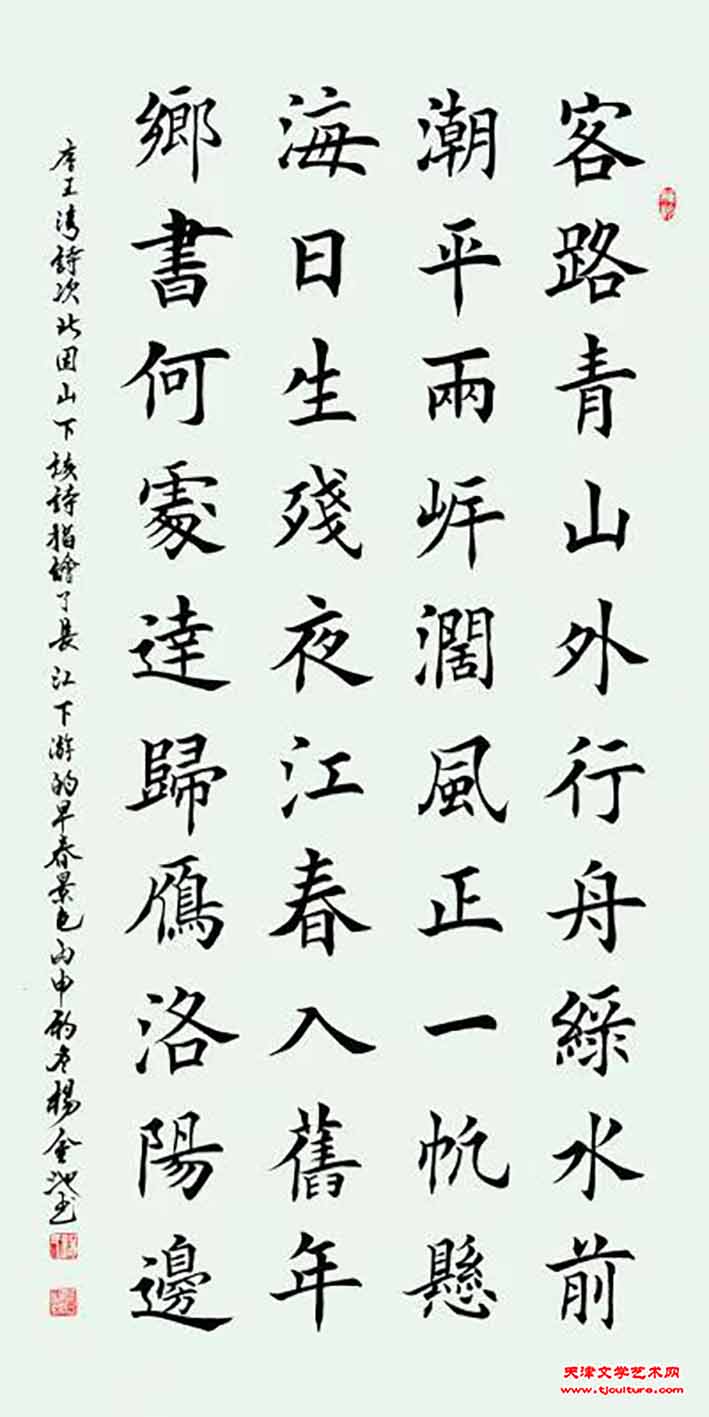 客路青山外行舟綠水前
潮平兩岸濶風正一帆懸
海日生殘夜江春入舊年
鄉書何處達歸鴈洛陽邊
唐王湾詩次北固山下该诗描繪了長江下游的早春景色丙申初冬楊金池书
天津文学艺术网
www.tjculture.com